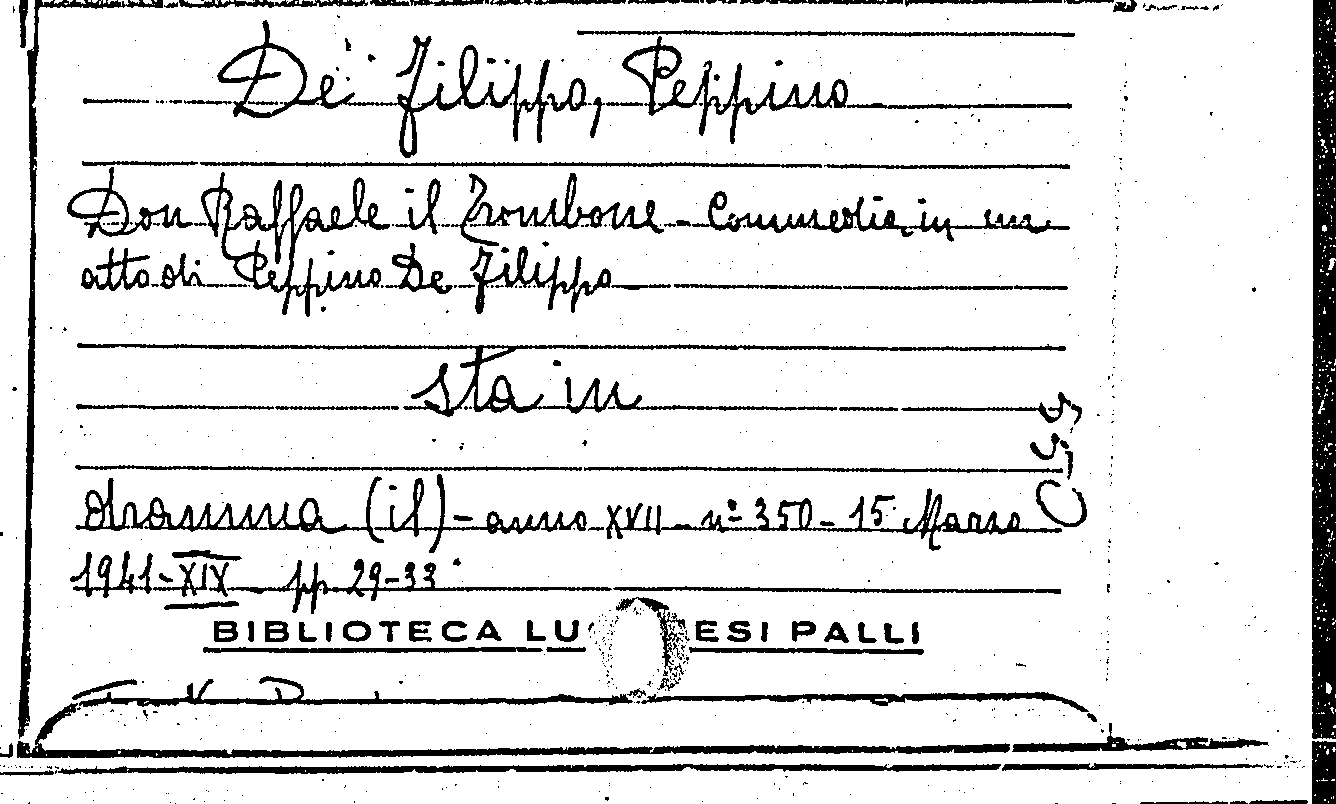 De Filippo, Peppino
Don Raffaele il Trombone - Commedia in un
atto di Peppino De Filippo
sta in
dramma (il) - anno XVII - nº 350 - 15 Marzo
1941 - XIX - pp. 29-33
BIBLIOTECA LU ESI PALLI